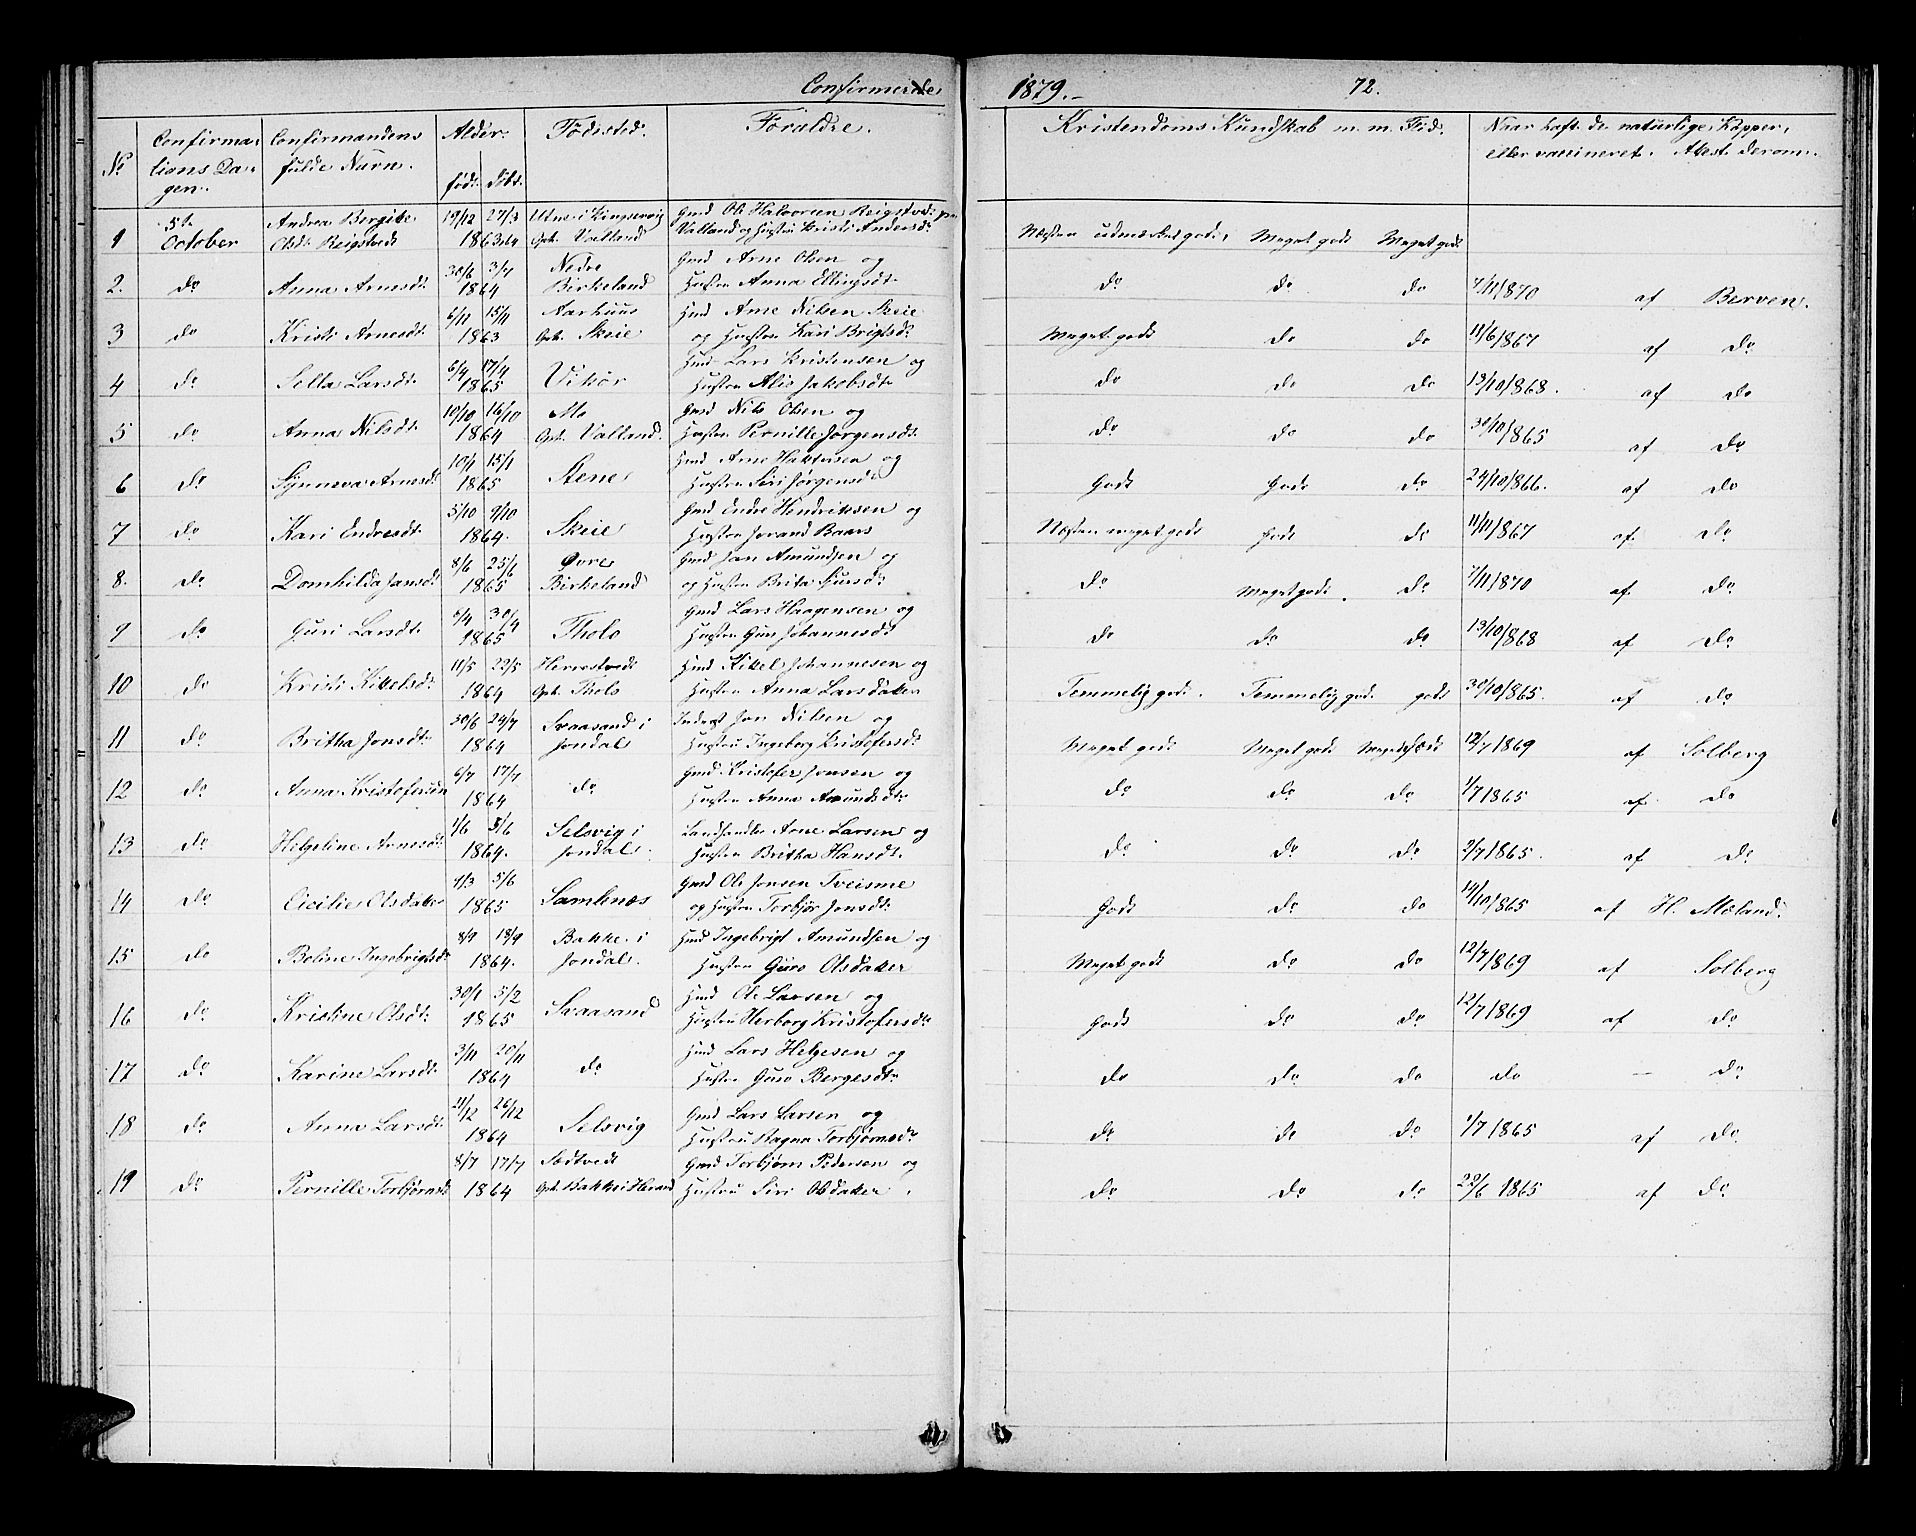 Confirmerede
1879.-
72.
No
Confirmations Dagen.
Confirmandens fulde Navn.
Alder.
født. døbt.
Fødested.
Forældre.
Kristendoms Kundskab m. m. Flid.
Naar haft de naturlige Kopper, eller vaccineret. Attest derom.
1 5te October Andrea Bergitte Olsdt Reigstved 19/12 27/3 1863 64 Utne i Kingservig Oph. Valland Gmd Ole Halvorsen Reigstved Valland og Hustru Kristi Andersdt Næsten udmærket godt, Meget godt Meget godt
2. do Anna Arnesdt. 30/6 3/7 1864 Nedre Birkeland Gmd Arne Olsen og Hustru Anna Ellingsdt. do do do 7/11 1870 af Berven.
3 do Kristi Arnesdt. 6/11 15/11 1863 Aarhuus Oph. Skeie Hmd Arne Nilsen Skeie og Hustru Kari Brigtsdt. Meget godt do do 11/6 1867 af do
4 do Sella Larsdt. 6/4 17/4 1865 Vikør Hmd Lars Kristensen og Hustru Alis Jakobsdt. do do do 13/10 1868. af do
5 do Anna Nilsdt. 10/10 16/10 1864 Mo Oph. Valland. Gmd Nils Olsen og Hustru Pernille Jørgensdt. do do do 30/10 1865 af do
6 do Synneva Arnesdt 10/1 15/1 1865 Stene Hmd Arne Haktorsen og Hustru Siri Jørgensdt Godt Godt do 24/10 1866. af do
7 do Kari Endresdt. 5/10 9/10 1864. Skeie Gmd Endre Hendriksen og Hustru Jorand Baars Næsten meget godt Godt do 11/11 1867 af. do
8. do Domhilda Jansdt 8/6 25/6 1865 Øvre Birkeland Gmd Jan Amundsen og og Hustru Brita do Meget godt. do 7/11 1870 af. do
9 do Guri Larsdt. 6/4 30/4 1865 Tholo Gmd Lars Haagensen og Hustru Guri Johannesdt do do do 13/10 1868 af do
10 do Kristi Kittelsdt. 11/5 22/5 1864 Herrestvedt Oph. Tholo Hmd Kittel Johannesen og Hustru Anna Larsdatter Temmelig godt. Temmelig godt godt 30/10 1865. af do
11 do Britha Jonsdt. 30/6 24/7 1864 Svaasand i Jondal Inderst Jon Nilsen og Hustru Ingeborg Kristofersdt. Meget godt Meget godt 12/7 1869 af Solberg
12 do Anna Kristofersdt 6/7 17/7 1864 do Gmd Kristofer Jonsen og Hustru Anna Amundsdt. do do do 1/7 1865 af. do
13 do Helgeline Arnesdt. 1/6 5/6 1864. Selsvig i Jondal. Landhandler Arne Larsen og Hustru Britha Hansdt. do do do 2/7 1865. af do
14 do Cicilie Olsdatter 1/3 5/6 1865 Samlenæs Gmd Ole Jonsen Tveisme og Hustru Torbjør Jonsdt. Godt do do 14/10 1865 af H. Mæland.
15 do Boline Ingebrigtsdt 8/9 18/9 1864. Bakke i Jondal. Hmd Ingebrigt Amundsen og Hustru Guro Olsdatter Meget godt do do 12/7 1869 af Solberg
16 do Kristine Olsdt. 30/1 5/2 1865 Svaasand Hmd Ole Larsen og Hustru Herborg Kristofersdt. Godt do do 12/7 1869 af do
17 do Karine Larsdt. 3/11 20/11 1864 do Hmd Lars Helgesen og Hustru Guro Bergesdt. do do do do — do
18 do Anna Larsdt. 21/12 26/12 1864 Selsvig Gmd Lars Larsen og Hustru Ragna Torbjørnsdt. do do do 1/7 1865 af do
19 do Pernille Torbjørnsdt 8/7 17/7 1864 Sodtvedt Oph. Bakke i Herand Gmd Torbjørn Pedersen og Hustru Siri Olsdatter. do do do 22/6 1865 af do